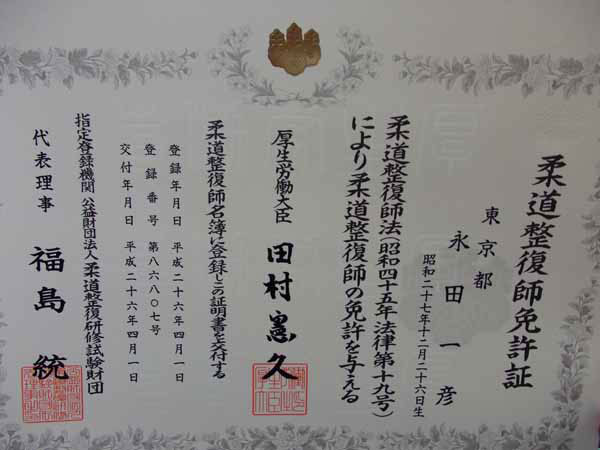 柔道整復師免許証
東京都
永田一彦
昭和二十七年十二月二十六日生
柔道整復師法（昭和四十五年法律第十九号）
により柔道整復師の免許を与える
厚生労働大臣 田村憲久
柔道整復師名簿に登録しこの証明書を交付する
登録年月日 平成二十六年四月一日
登録番号 第八六八〇七号
交付年月日 平成二十六年四月一日
指定登録機関 公益財団法人 柔道整復研修試験財団
代表理事 福島統